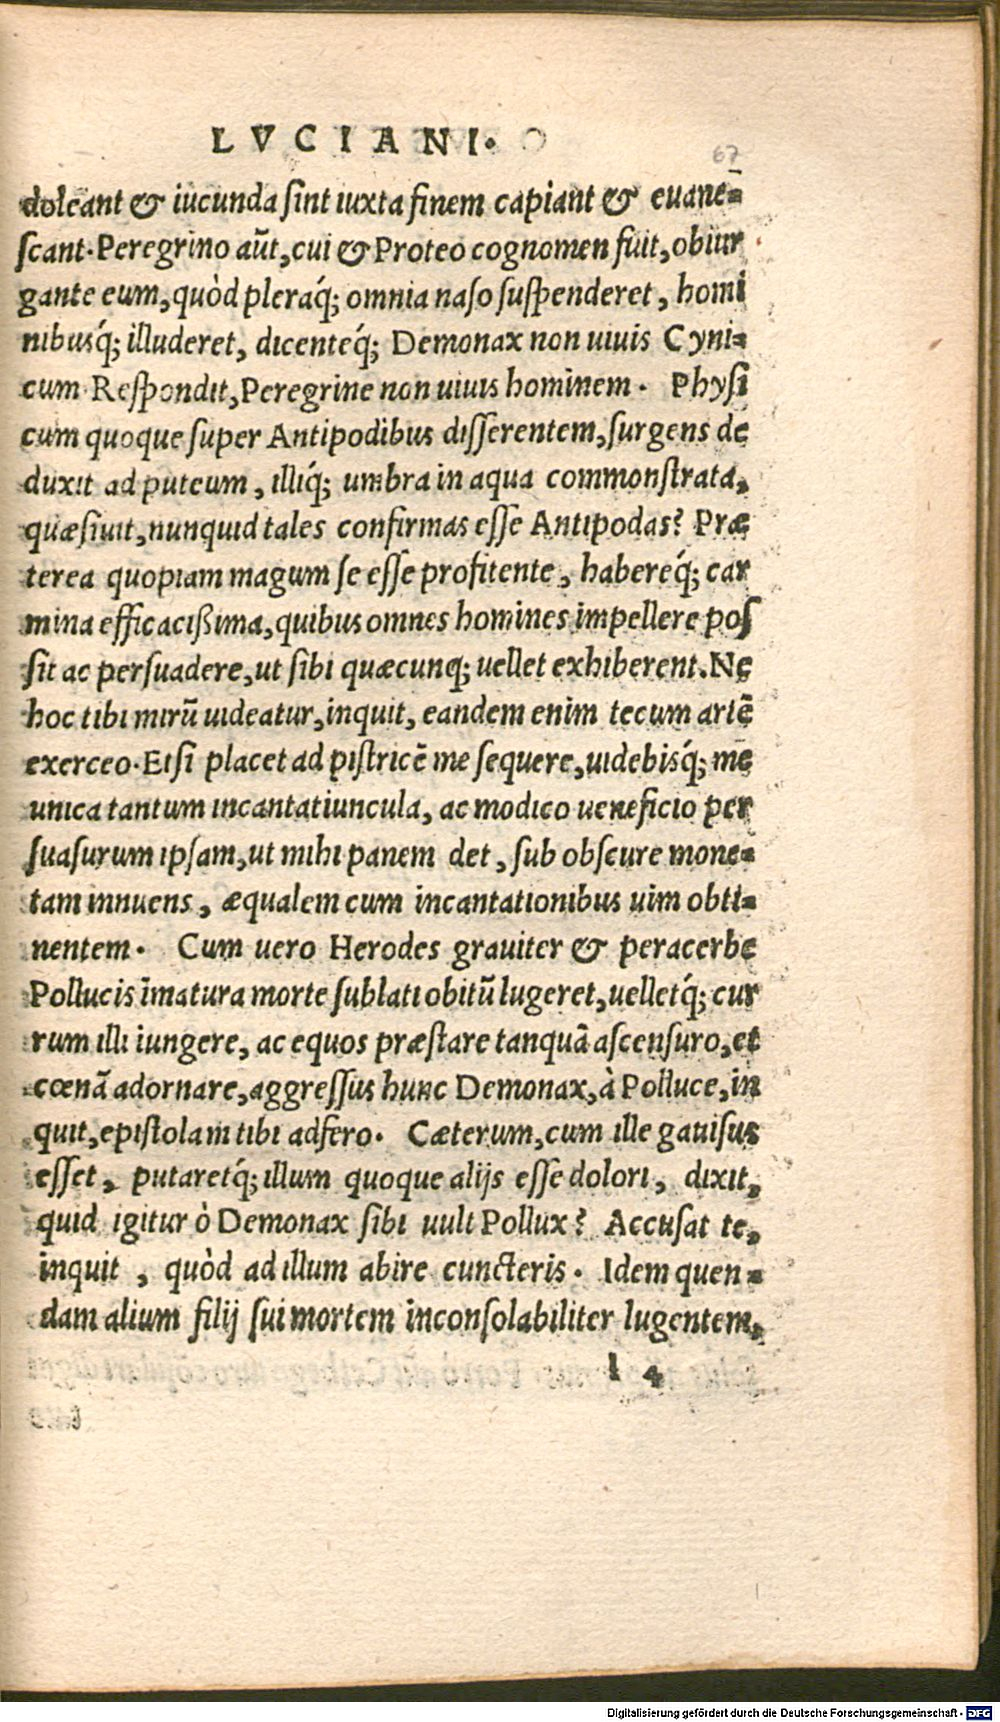 LVCIANI.
67
doleant & iucunda sint iuxta finem capiant & euane-
scant. Peregrino aũt, cui & Proteo cognomen fuit, obiur
gante eum, quòd pleraq́; omnia naso suspenderet, homi
nibusq́; illuderet, dicenteq́; Demonax non uiuis Cyni-
cum. Respondit, Peregrine non uiuis hominem. Physi
cum quoque super Antipodibus disserentem, surgens de
duxit ad puteum, illiq́; umbra in aqua commonstrata,
quæsiuit, nunquid tales confirmas esse Antipodas? Præ
terea quopiam magum se esse profitente, habereq́; car
mina efficacißima, quibus omnes homines impellere pos
sit ac persuadere, ut sibi quæcunq; uellet exhiberent. Ne
hoc tibi mirũ uideatur, inquit, eandem enim tecum artẽ
exerceo. Et si placet ad pistricẽ me sequere, uidebisq́; me
unica tantum incantatiuncula, ac modico ueneficio per
suasurum ipsam, ut mihi panem det, sub obscure mone-
tam innuens, æqualem cum incantationibus uim obti-
nentem. Cum uero Herodes grauiter & peracerbe
Pollucis ĩmatura morte sublati obitũ lugeret, uelletq́; cur
rum illi iungere, ac equos præstare tanquã ascensuro, et
cœnã adornare, aggressus hunc Demonax, à Polluce, in
quit, epistolam tibi adfero. Cæterum, cum ille gauisus
esset, putaretq́; illum quoque alijs esse dolori, dixit,
quid igitur ò Demonax sibi uult Pollux? Accusat te,
inquit, quòd ad illum abire cuncteris. Idem quen-
dam alium filij sui mortem inconsolabiliter lugentem,
l 4
Digitalisierung gefördert durch die Deutsche Forschungsgemeinschaft - DFG